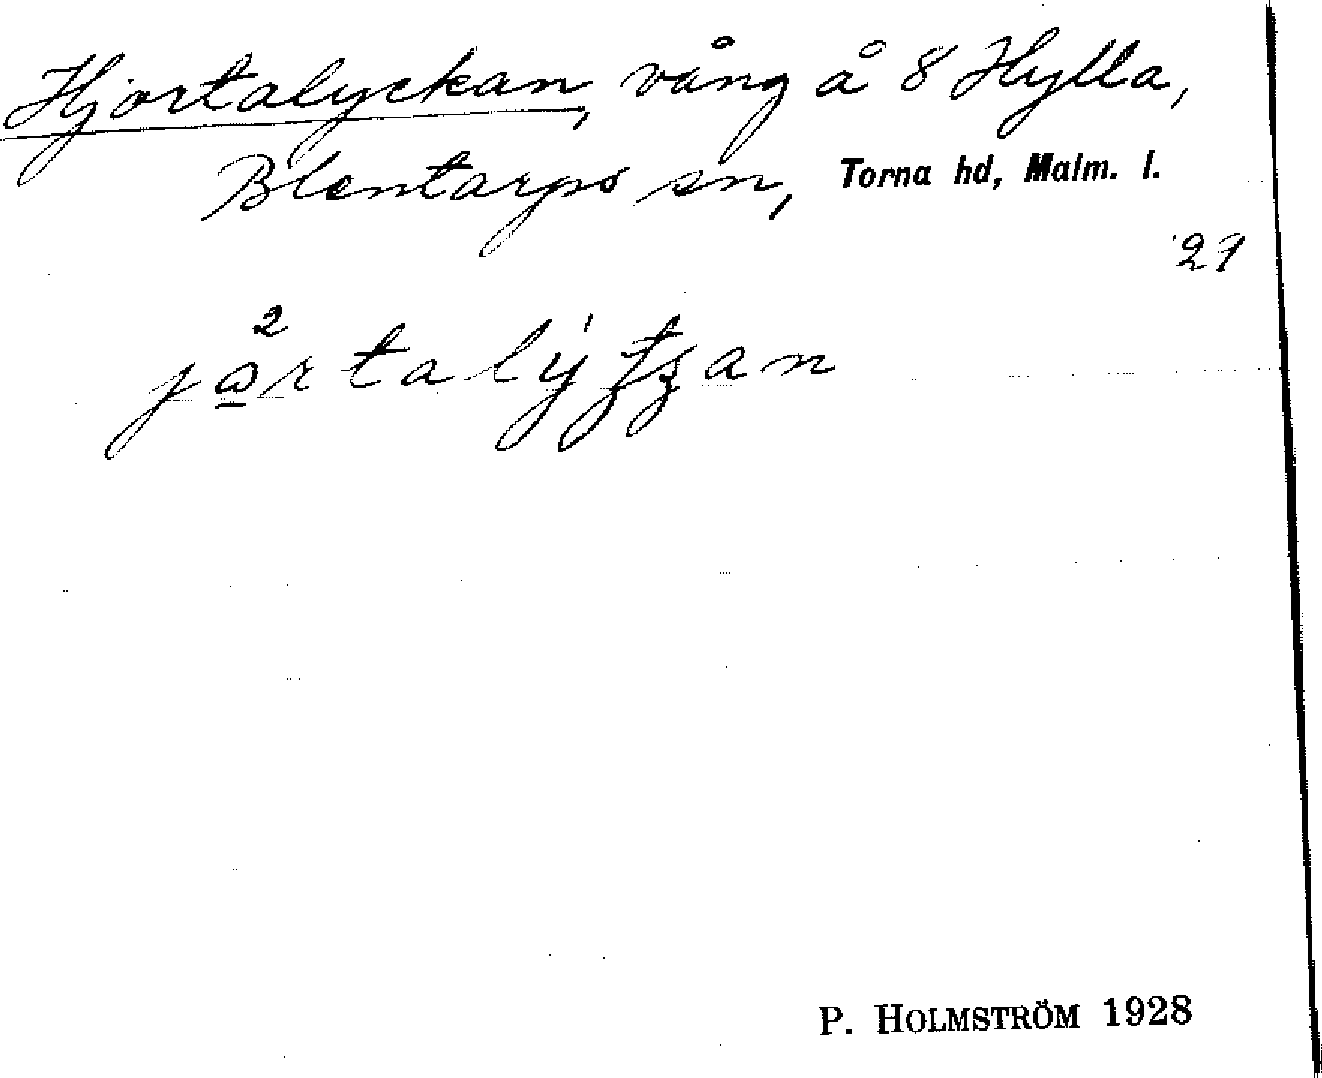 Hjortalyckan, vång å 8 Hylla,
Blentarps sn, Torna hd, Malm. l.
29
P. HOLMSTRÖM 1928